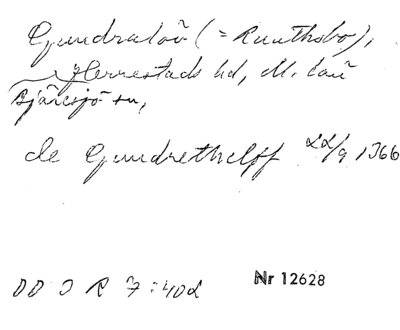 Gundralöv (= Ruuthsbo),
Herrestads hd, M. län
Bjäresjö sn,
de Gundrethelff 22/9 1366
DD I R 7:402
Nr 12628